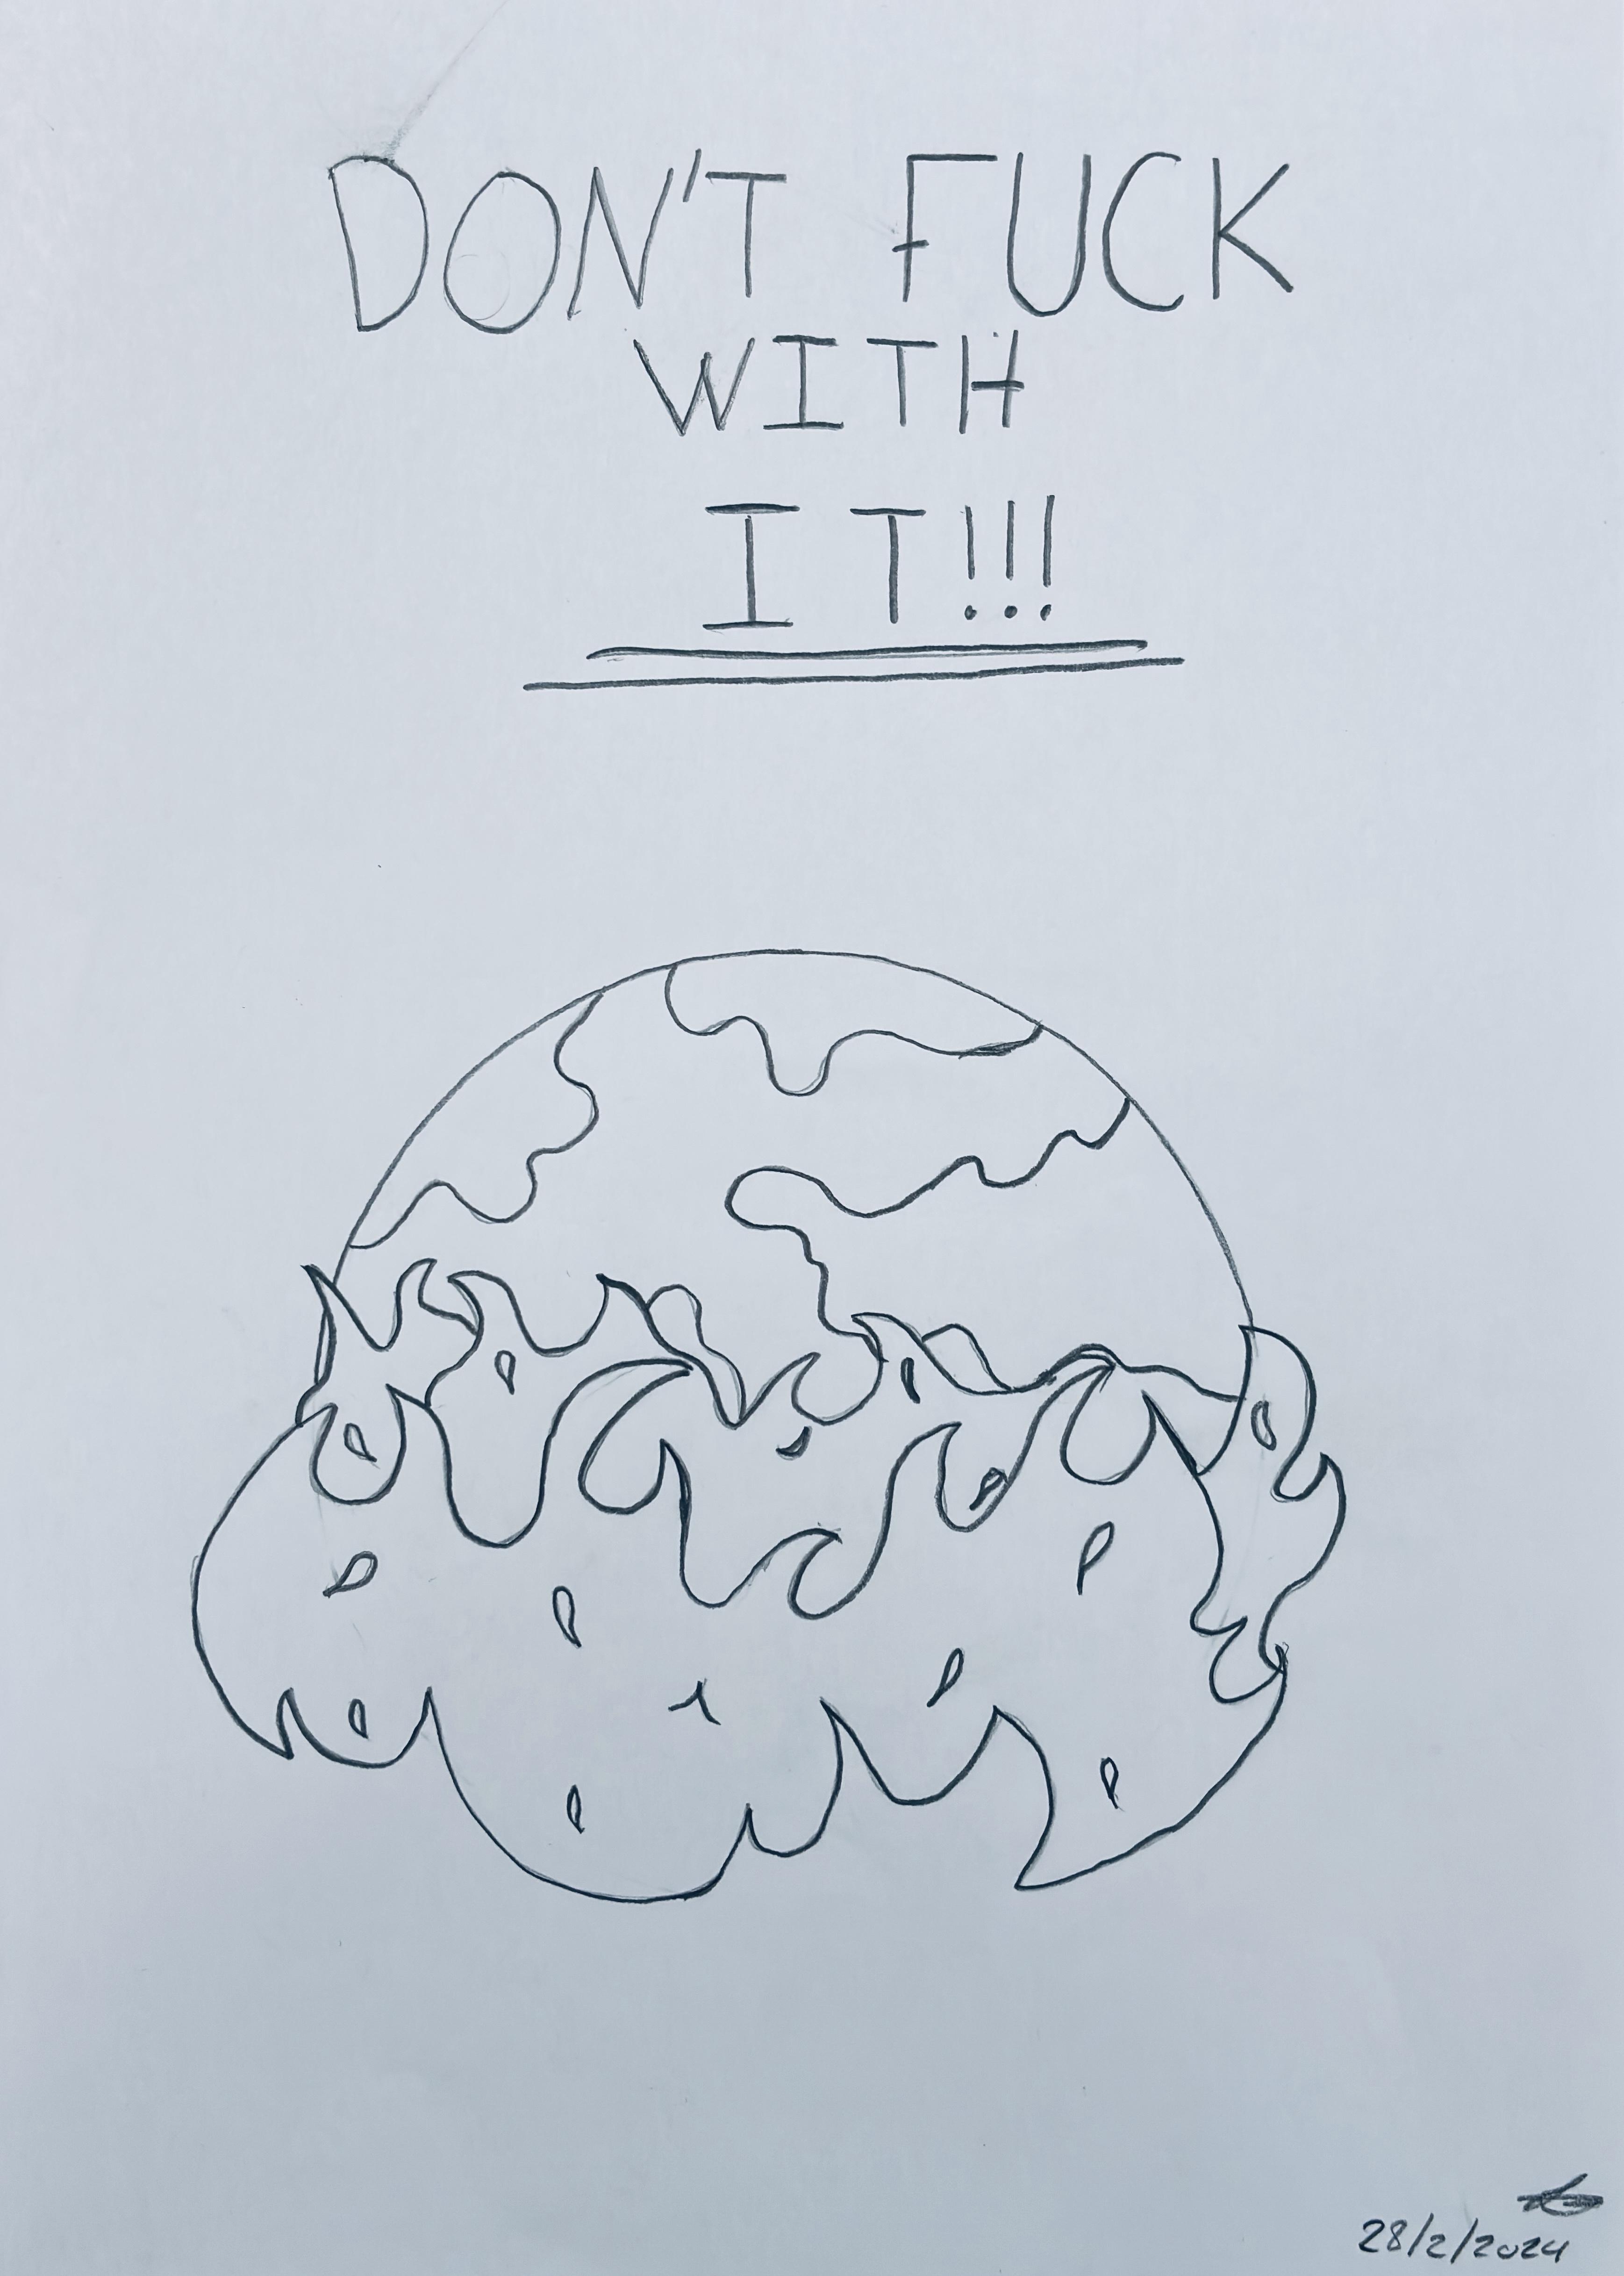 DON'T FUCK
WITH
IT!!!
28/2/2024